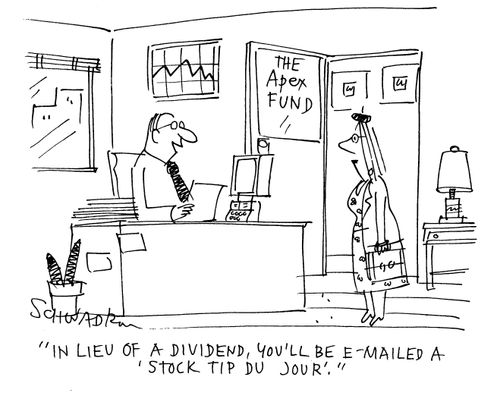 THE
Apex
FUND
SCHWADRON
"IN LIEU OF A DIVIDEND, YOU'LL BE E-MAILED A
'STOCK TIP DU JOUR'."